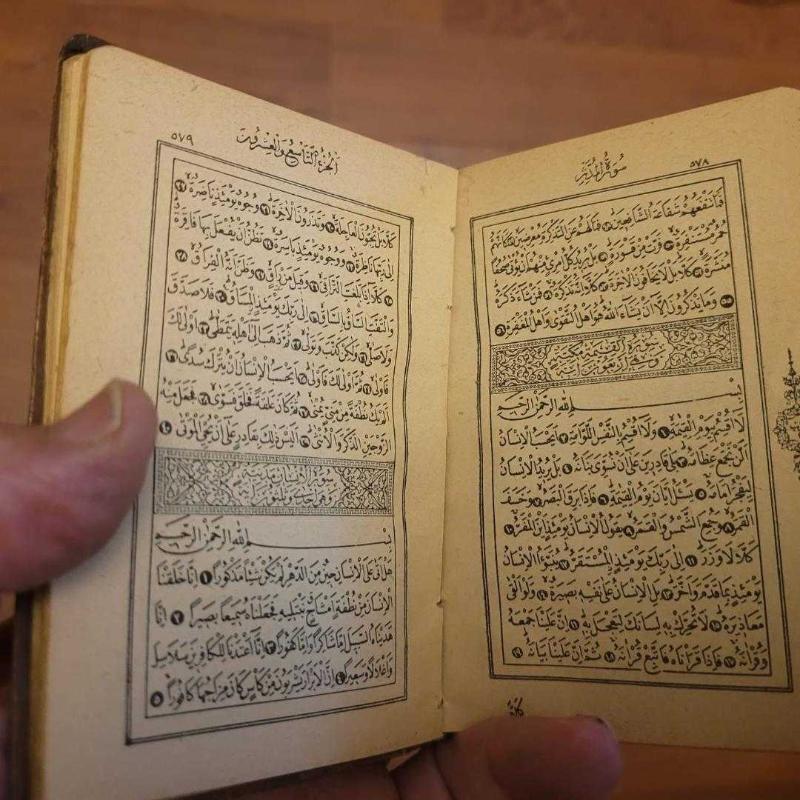 سُورَةُ الْمُدَّثِّرِ ٥٧٨
فَمَا تَنْفَعُهُمْ شَفَاعَةُ الشَّافِعِينَ ٤٨ فَمَا لَهُمْ عَنِ التَّذْكِرَةِ مُعْرِضِينَ ٤٩ كَاَنَّهُمْ
حُمُرٌ مُسْتَنْفِرَةٌ ٥٠ فَرَّتْ مِنْ قَسْوَرَةٍ ٥١ بَلْ يُرِيدُ كُلُّ امْرِئٍ مِنْهُمْ اَنْ يُؤْتٰى صُحُفًا
مُنَشَّرَةً ٥٢ كَلَّا بَلْ لَا يَخَافُونَ الْاٰخِرَةَ ٥٣ كَلَّا اِنَّهُ تَذْكِرَةٌ ٥٤ فَمَنْ شَاءَ ذَكَرَهُ
٥٥ وَمَا يَذْكُرُونَ اِلَّا اَنْ يَشَاءَ اللّٰهُ هُوَ اَهْلُ التَّقْوٰى وَاَهْلُ الْمَغْفِرَةِ ٥٦
سورة القيمة مكية
وهي اربعون آية
بِسْمِ اللّٰهِ الرَّحْمٰنِ الرَّحِيمِ
لَا اُقْسِمُ بِيَوْمِ الْقِيٰمَةِ ١ وَلَا اُقْسِمُ بِالنَّفْسِ اللَّوَّامَةِ ٢ اَيَحْسَبُ الْاِنْسَانُ
اَلَّنْ نَجْمَعَ عِظَامَهُ ٣ بَلٰى قَادِرِينَ عَلٰى اَنْ نُسَوِّيَ بَنَانَهُ ٤ بَلْ يُرِيدُ الْاِنْسَانُ
لِيَفْجُرَ اَمَامَهُ ٥ يَسْئَلُ اَيَّانَ يَوْمُ الْقِيٰمَةِ ٦ فَاِذَا بَرِقَ الْبَصَرُ ٧ وَخَسَفَ
الْقَمَرُ ٨ وَجُمِعَ الشَّمْسُ وَالْقَمَرُ ٩ يَقُولُ الْاِنْسَانُ يَوْمَئِذٍ اَيْنَ الْمَفَرُّ ١٠
كَلَّا لَا وَزَرَ ١١ اِلٰى رَبِّكَ يَوْمَئِذٍ الْمُسْتَقَرُّ ١٢ يُنَبَّؤُا الْاِنْسَانُ
يَوْمَئِذٍ بِمَا قَدَّمَ وَاَخَّرَ ١٣ بَلِ الْاِنْسَانُ عَلٰى نَفْسِهِ بَصِيرَةٌ ١٤ وَلَوْ اَلْقٰى
مَعَاذِيرَهُ ١٥ لَا تُحَرِّكْ بِهِ لِسَانَكَ لِتَعْجَلَ بِهِ ١٦ اِنَّ عَلَيْنَا جَمْعَهُ
وَقُرْاٰنَهُ ١٧ فَاِذَا قَرَأْنَاهُ فَاتَّبِعْ قُرْاٰنَهُ ١٨ ثُمَّ اِنَّ عَلَيْنَا بَيَانَهُ ١٩
كَلَّا
اَلْجُزْءُ التَّاسِعُ وَالْعِشْرُونَ ٥٧٩
كَلَّا بَلْ تُحِبُّونَ الْعَاجِلَةَ ٢٠ وَتَذَرُونَ الْاٰخِرَةَ ٢١ وُجُوهٌ يَوْمَئِذٍ نَاضِرَةٌ ٢٢
اِلٰى رَبِّهَا نَاظِرَةٌ ٢٣ وَوُجُوهٌ يَوْمَئِذٍ بَاسِرَةٌ ٢٤ تَظُنُّ اَنْ يُفْعَلَ بِهَا فَاقِرَةٌ
٢٥ كَلَّا اِذَا بَلَغَتِ التَّرَاقِيَ ٢٦ وَقِيلَ مَنْ رَاقٍ ٢٧ وَظَنَّ اَنَّهُ الْفِرَاقُ ٢٨
وَالْتَفَّتِ السَّاقُ بِالسَّاقِ ٢٩ اِلٰى رَبِّكَ يَوْمَئِذٍ الْمَسَاقُ ٣٠ فَلَا صَدَّقَ
وَلَا صَلّٰى ٣١ وَلٰكِنْ كَذَّبَ وَتَوَلّٰى ٣٢ ثُمَّ ذَهَبَ اِلٰى اَهْلِهِ يَتَمَطّٰى ٣٣ اَوْلٰى لَكَ
فَاَوْلٰى ٣٤ ثُمَّ اَوْلٰى لَكَ فَاَوْلٰى ٣٥ اَيَحْسَبُ الْاِنْسَانُ اَنْ يُتْرَكَ سُدًى ٣٦
اَلَمْ يَكُ نُطْفَةً مِنْ مَنِيٍّ يُمْنٰى ٣٧ ثُمَّ كَانَ عَلَقَةً فَخَلَقَ فَسَوّٰى ٣٨ فَجَعَلَ مِنْهُ
الزَّوْجَيْنِ الذَّكَرَ وَالْاُنْثٰى ٣٩ اَلَيْسَ ذٰلِكَ بِقَادِرٍ عَلٰى اَنْ يُحْيِيَ الْمَوْتٰى ٤٠
سورة الانسان مدنية
وهي احدى وثلثون آية
بِسْمِ اللّٰهِ الرَّحْمٰنِ الرَّحِيمِ
هَلْ اَتٰى عَلَى الْاِنْسَانِ حِينٌ مِنَ الدَّهْرِ لَمْ يَكُنْ شَيْئًا مَذْكُورًا ١ اِنَّا خَلَقْنَا
الْاِنْسَانَ مِنْ نُطْفَةٍ اَمْشَاجٍ نَبْتَلِيهِ فَجَعَلْنَاهُ سَمِيعًا بَصِيرًا ٢ اِنَّا
هَدَيْنَاهُ السَّبِيلَ اِمَّا شَاكِرًا وَاِمَّا كَفُورًا ٣ اِنَّا اَعْتَدْنَا لِلْكَافِرِينَ سَلَاسِلَ
وَاَغْلَالًا وَسَعِيرًا ٤ اِنَّ الْاَبْرَارَ يَشْرَبُونَ مِنْ كَأْسٍ كَانَ مِزَاجُهَا كَافُورًا ٥